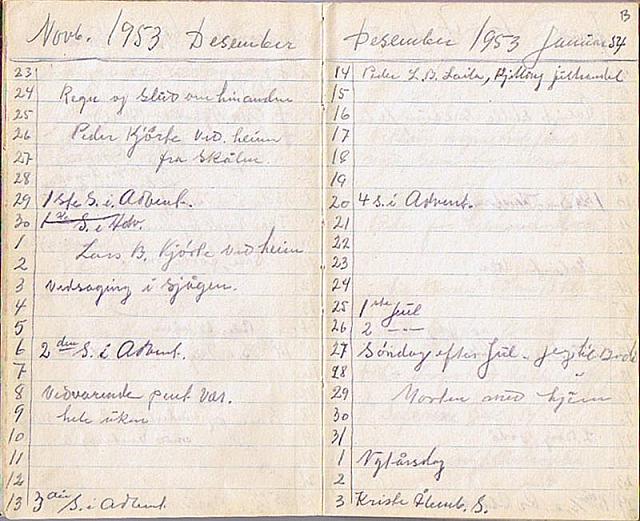 Novb. 1953 Desember
23
24 Regn og Slud om hinanden
25
26 Peder Kjörle Ved. heim
27 fra Skålin.
28
29 1ste S. i. Advent.
30 1ste S. i Adv.
1 Lars B. Kjörle ved heim
2
3 Vedsaging i Sjågen.
4
5
6 2den S. i Advent.
7
8 Vedvarende pent Vær.
9 hele uken
10
11
12
13 3die S. i Advent.
B
Desember 1953 Januar 54
14 Peder L. B.
15
16
17
18
19
20 4 S. i Advent.
21
22
23
24
25 1ste Jul
26 2 — —
27 Söndag efter Jul.
28
29 Morten med hjem
30
31
1 Nytårsdag
2
3 Kriste Åbenb. S.